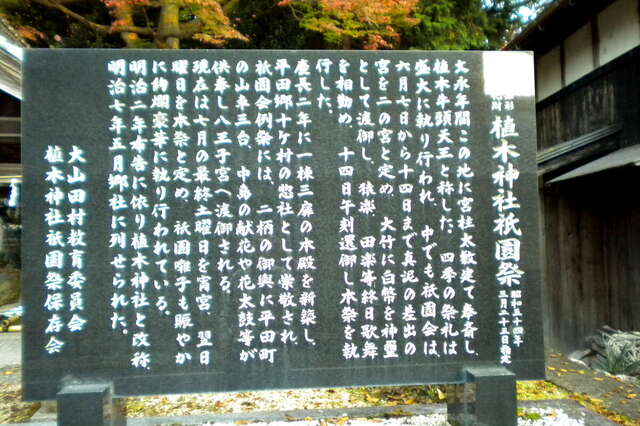 無形
文化財
植木神社祇園祭
昭和五十四年
三月二十三日指定
文永年間この地に宮柱太敷建て奉斎し
植木牛頭天王と称した。四季の祭礼は
盛大に執り行われ、中でも祇園会は、
六月七日から十四日まで真泥の差出の
宮を二の宮と定め、大竹に白幣を神璽
として渡御し、猿楽、田楽等終日歌舞
を相勤め、十四日午刻還御し本祭を執
行した。
慶長二年に一棟三扉の本殿を新築し、
平田郷十ケ村の惣社として崇敬され、
祇園会例祭には、二柄の御輿に平田町
の山車三台、中島の献花や花太鼓等が
供奉し八王子宮へ渡御される。
現在は七月の最終土曜日を宵宮、翌日
曜日を本祭と定め、祇園囃子も賑やか
に絢爛豪華に執り行われている。
明治二年布告に依り植木神社と改称、
明治七年五月郷社に列せられた。
大山田村教育委員会
植木神社祇園祭保存会